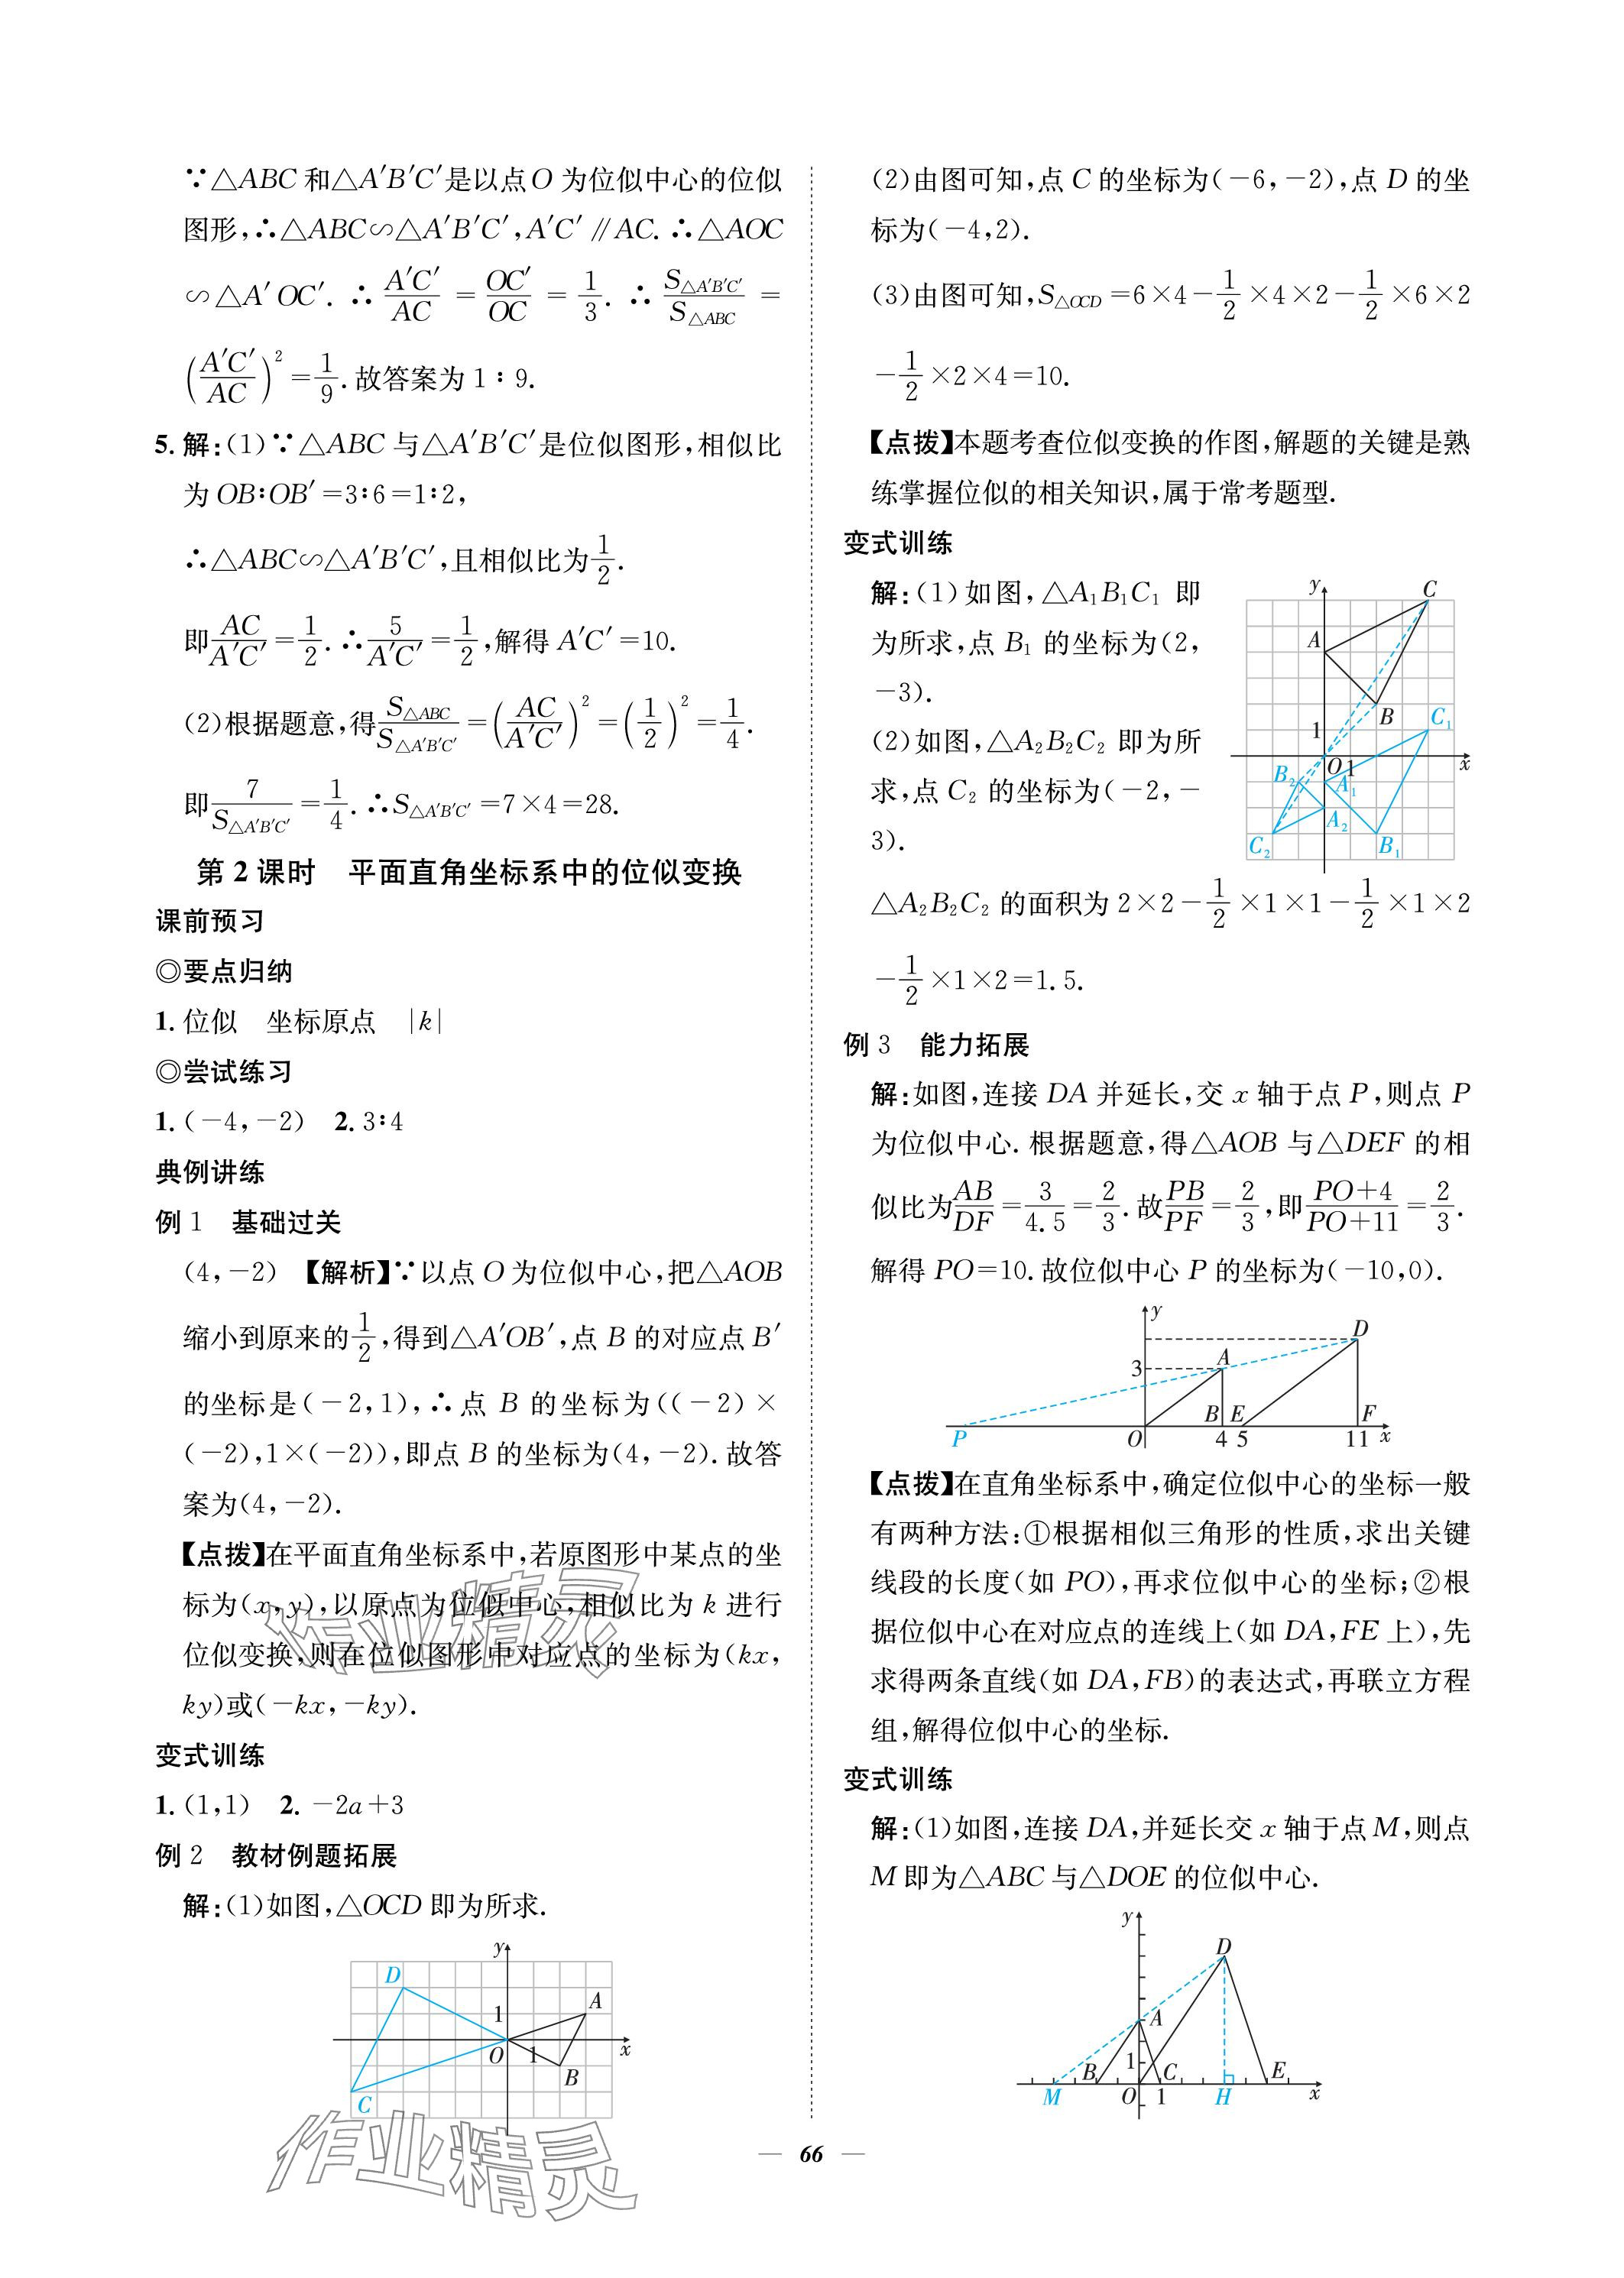 ∵△ABC和△A′B′C′是以点O为位似中心的位似
图形,∴△ABC∽△A′B′C′,A′C′∥AC.∴△AOC
∽△A′OC′.∴A′C′/AC=OC′/OC=1/3.∴S△A′B′C′/S△ABC=
(A′C′/AC)²=1/9.故答案为1∶9.
5.解:(1)∵△ABC与△A′B′C′是位似图形,相似比
为OB∶OB′=3∶6=1∶2,
∴△ABC∽△A′B′C′,且相似比为1/2.
即AC/A′C′=1/2.∴5/A′C′=1/2,解得A′C′=10.
(2)根据题意,得S△ABC/S△A′B′C′=(AC/A′C′)²=(1/2)²=1/4.
即7/S△A′B′C′=1/4.∴S△A′B′C′=7×4=28.
第2课时 平面直角坐标系中的位似变换
课前预习
◎要点归纳
1.位似 坐标原点 |k|
◎尝试练习
1.(-4,-2) 2.3∶4
典例讲练
例1 基础过关
(4,-2) 【解析】∵以点O为位似中心,把△AOB
缩小到原来的1/2,得到△A′OB′,点B的对应点B′
的坐标是(-2,1),∴点B的坐标为((-2)×
(-2),1×(-2)),即点B的坐标为(4,-2).故答
案为(4,-2).
【点拨】在平面直角坐标系中,若原图形中某点的坐
标为(x,y),以原点为位似中心,相似比为k进行
位似变换,则在位似图形中对应点的坐标为(kx,
ky)或(-kx,-ky).
变式训练
1.(1,1) 2.-2a+3
例2 教材例题拓展
解:(1)如图,△OCD即为所求.
y
D
1
A
O
1
x
B
C
(2)由图可知,点C的坐标为(-6,-2),点D的坐
标为(-4,2).
(3)由图可知,S△OCD=6×4-1/2×4×2-1/2×6×2
-1/2×2×4=10.
【点拨】本题考查位似变换的作图,解题的关键是熟
练掌握位似的相关知识,属于常考题型.
变式训练
解:(1)如图,△A₁B₁C₁即
为所求,点B₁的坐标为(2,
-3).
(2)如图,△A₂B₂C₂即为所
求,点C₂的坐标为(-2,-
3).
y
C
A
B
C₁
1
O
1
x
B₂
A₁
A₂
C₂
B₁
△A₂B₂C₂的面积为2×2-1/2×1×1-1/2×1×2
-1/2×1×2=1.5.
例3 能力拓展
解:如图,连接DA并延长,交x轴于点P,则点P
为位似中心.根据题意,得△AOB与△DEF的相
似比为AB/DF=3/4.5=2/3.故PB/PF=2/3,即PO+4/PO+11=2/3.
解得PO=10.故位似中心P的坐标为(-10,0).
y
D
3
A
B E
F
P
O
4 5
11
x
【点拨】在直角坐标系中,确定位似中心的坐标一般
有两种方法:①根据相似三角形的性质,求出关键
线段的长度(如PO),再求位似中心的坐标;②根
据位似中心在对应点的连线上(如DA,FE上),先
求得两条直线(如DA,FB)的表达式,再联立方程
组,解得位似中心的坐标.
变式训练
解:(1)如图,连接DA,并延长交x轴于点M,则点
M即为△ABC与△DOE的位似中心.
y
D
A
1
B
C
E
M
O
1
H
x
作业精灵
作业精灵
— 66 —